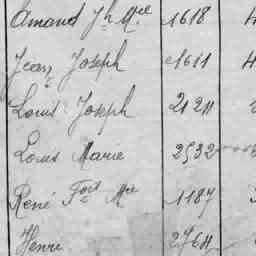 Amand Jh Mie 1618
Jean Joseph 1611
Louis Joseph
Louis Marie 2532
René Fois Mie 1187
Henri